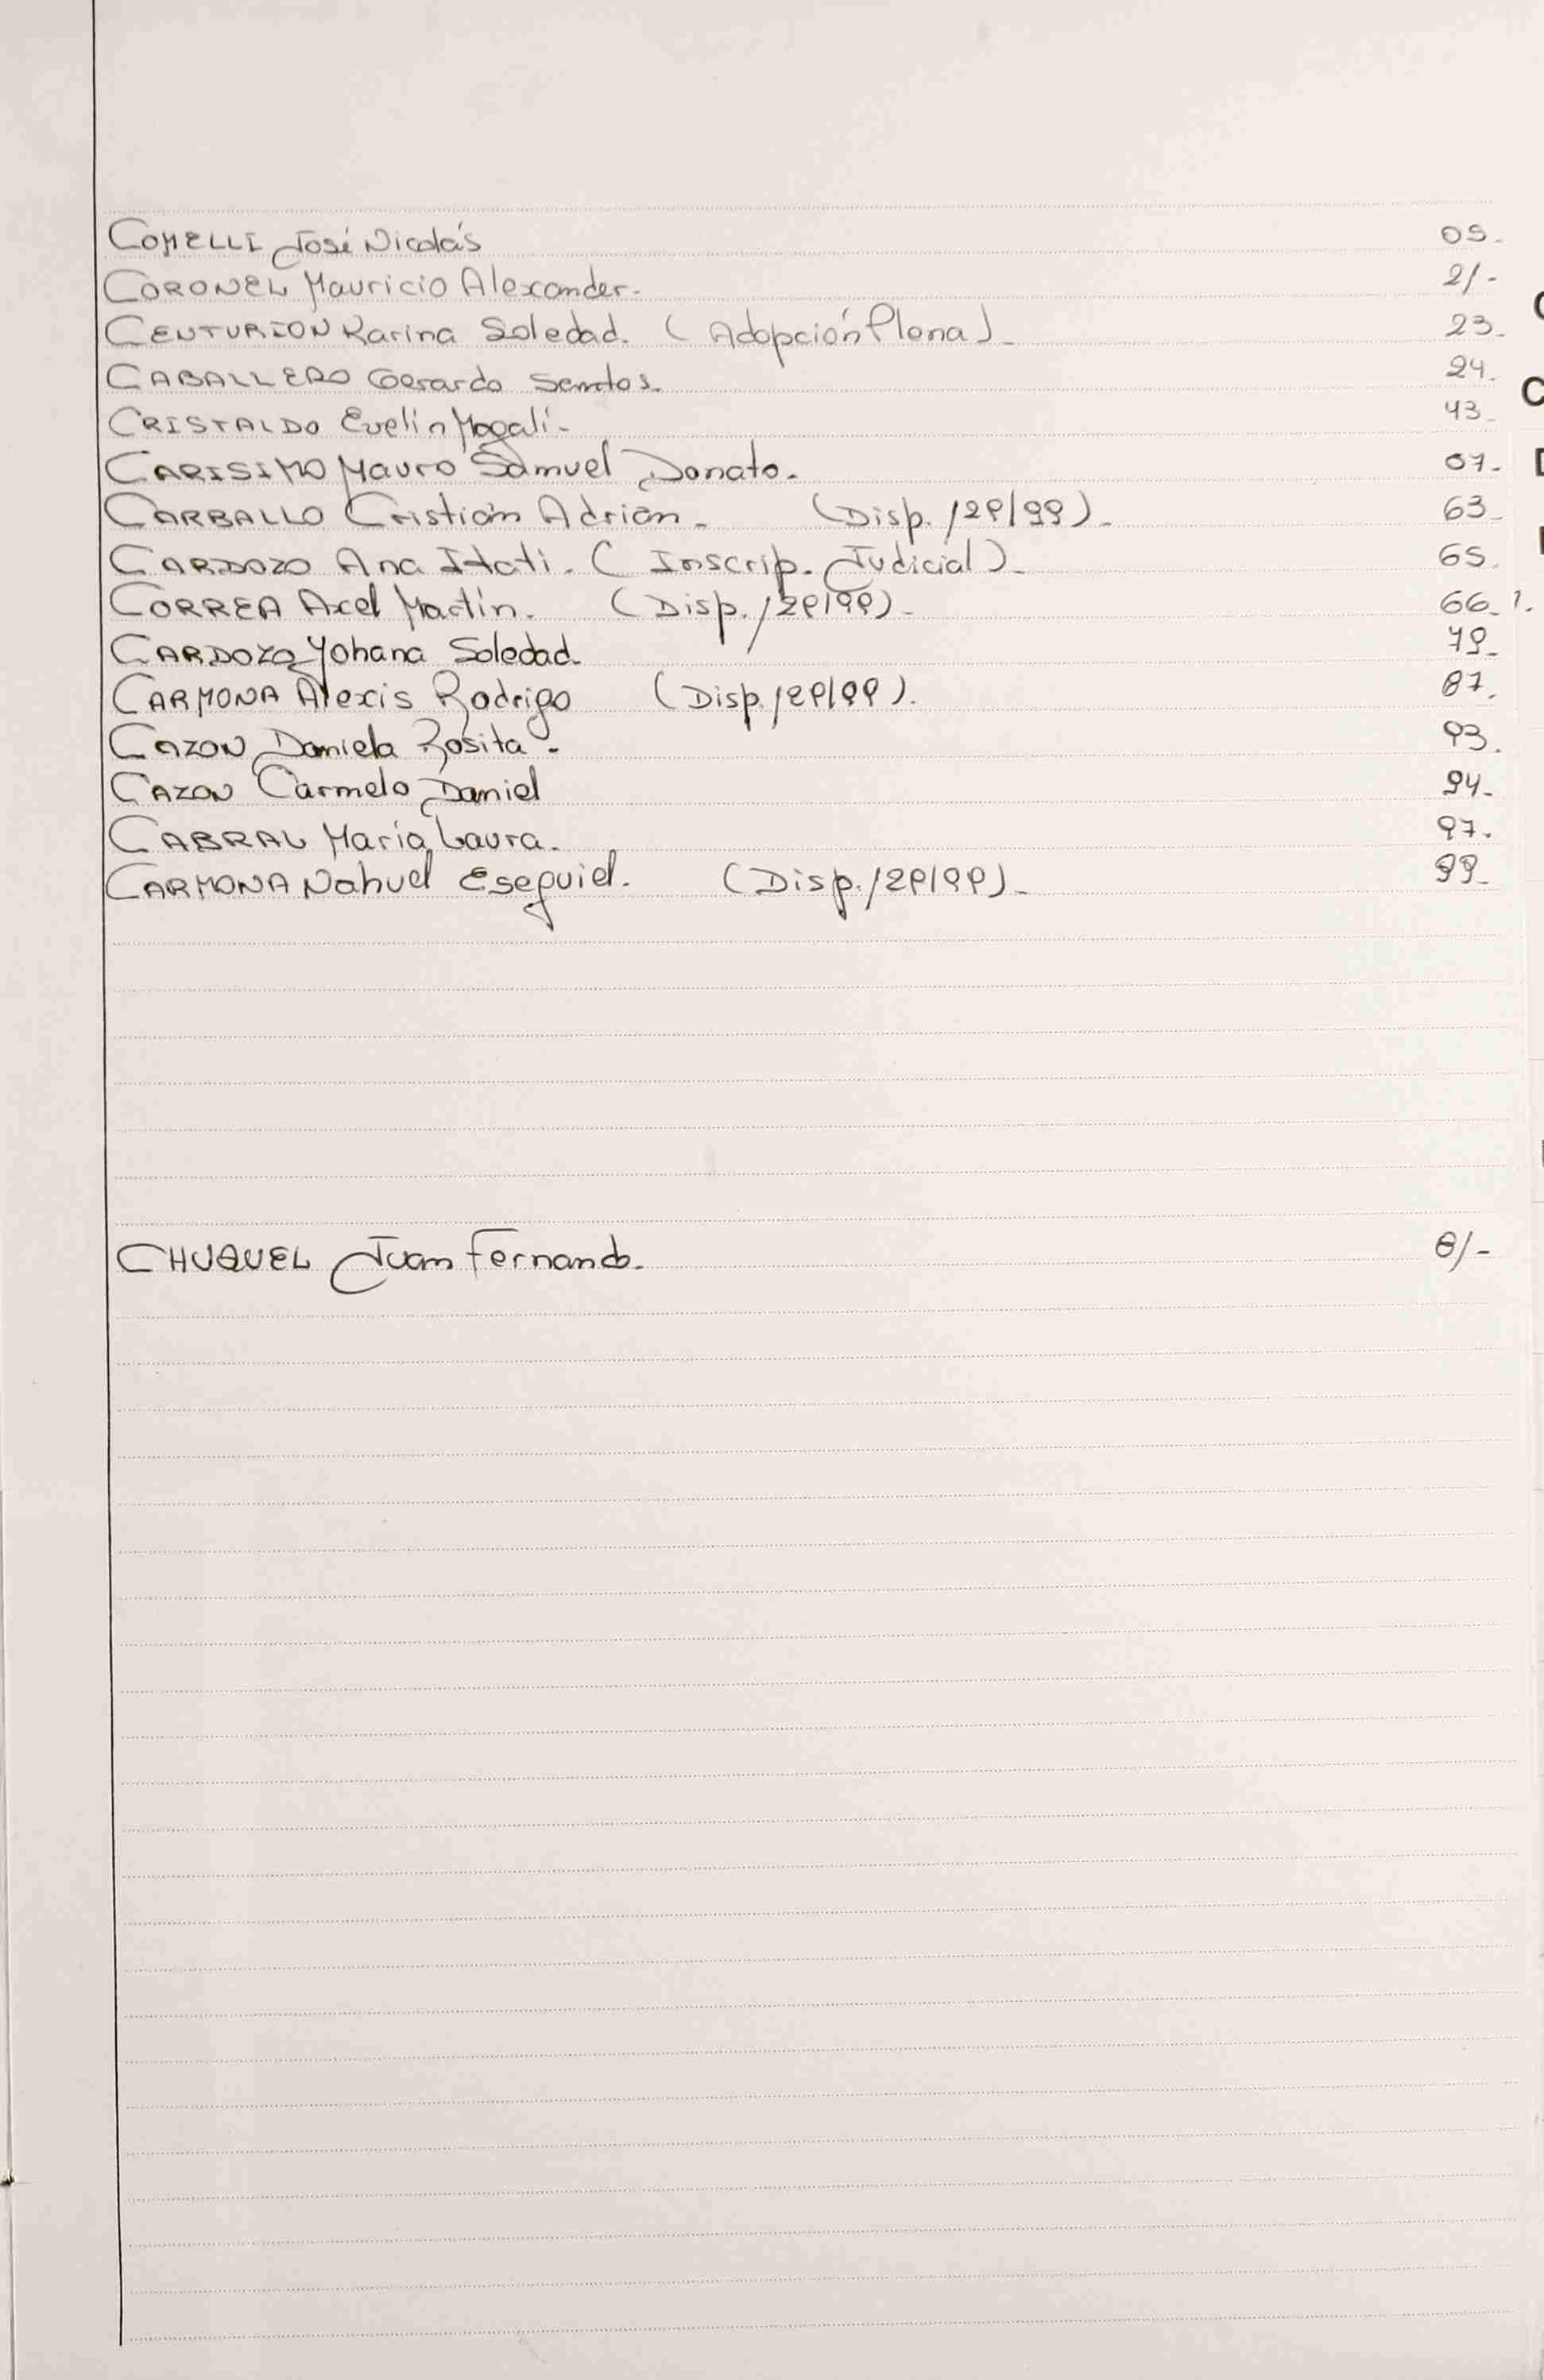 COMELLI José Nicolás 05.
CORONEL Mauricio Alexander. 21-
CENTURION Karina Soledad. (Adopción Plena). 23.
CABALLERO Gerardo Santos. 24.
CRISTALDO Evelin Magalí. 43.
CARISIMO Mauro Samuel Donato. 07.
CARBALLO Cristián Adrián. (Disp. 129/99). 63.
CARDOZO Ana Itati. (Inscrip. Judicial). 65.
CORREA Axel Martín. (Disp. 129/99). 66.
CARDOZO Yohana Soledad. 79.
CARMONA Alexis Rodrigo (Disp. 129/99). 87.
CAZON Daniela Rosita. 93.
CAZON Carmelo Daniel 94.
CABRAL María Laura. 97.
CARMONA Nahuel Esequiel. (Disp. 129/99). 99.
CHUQUEL Juan Fernando. 81-